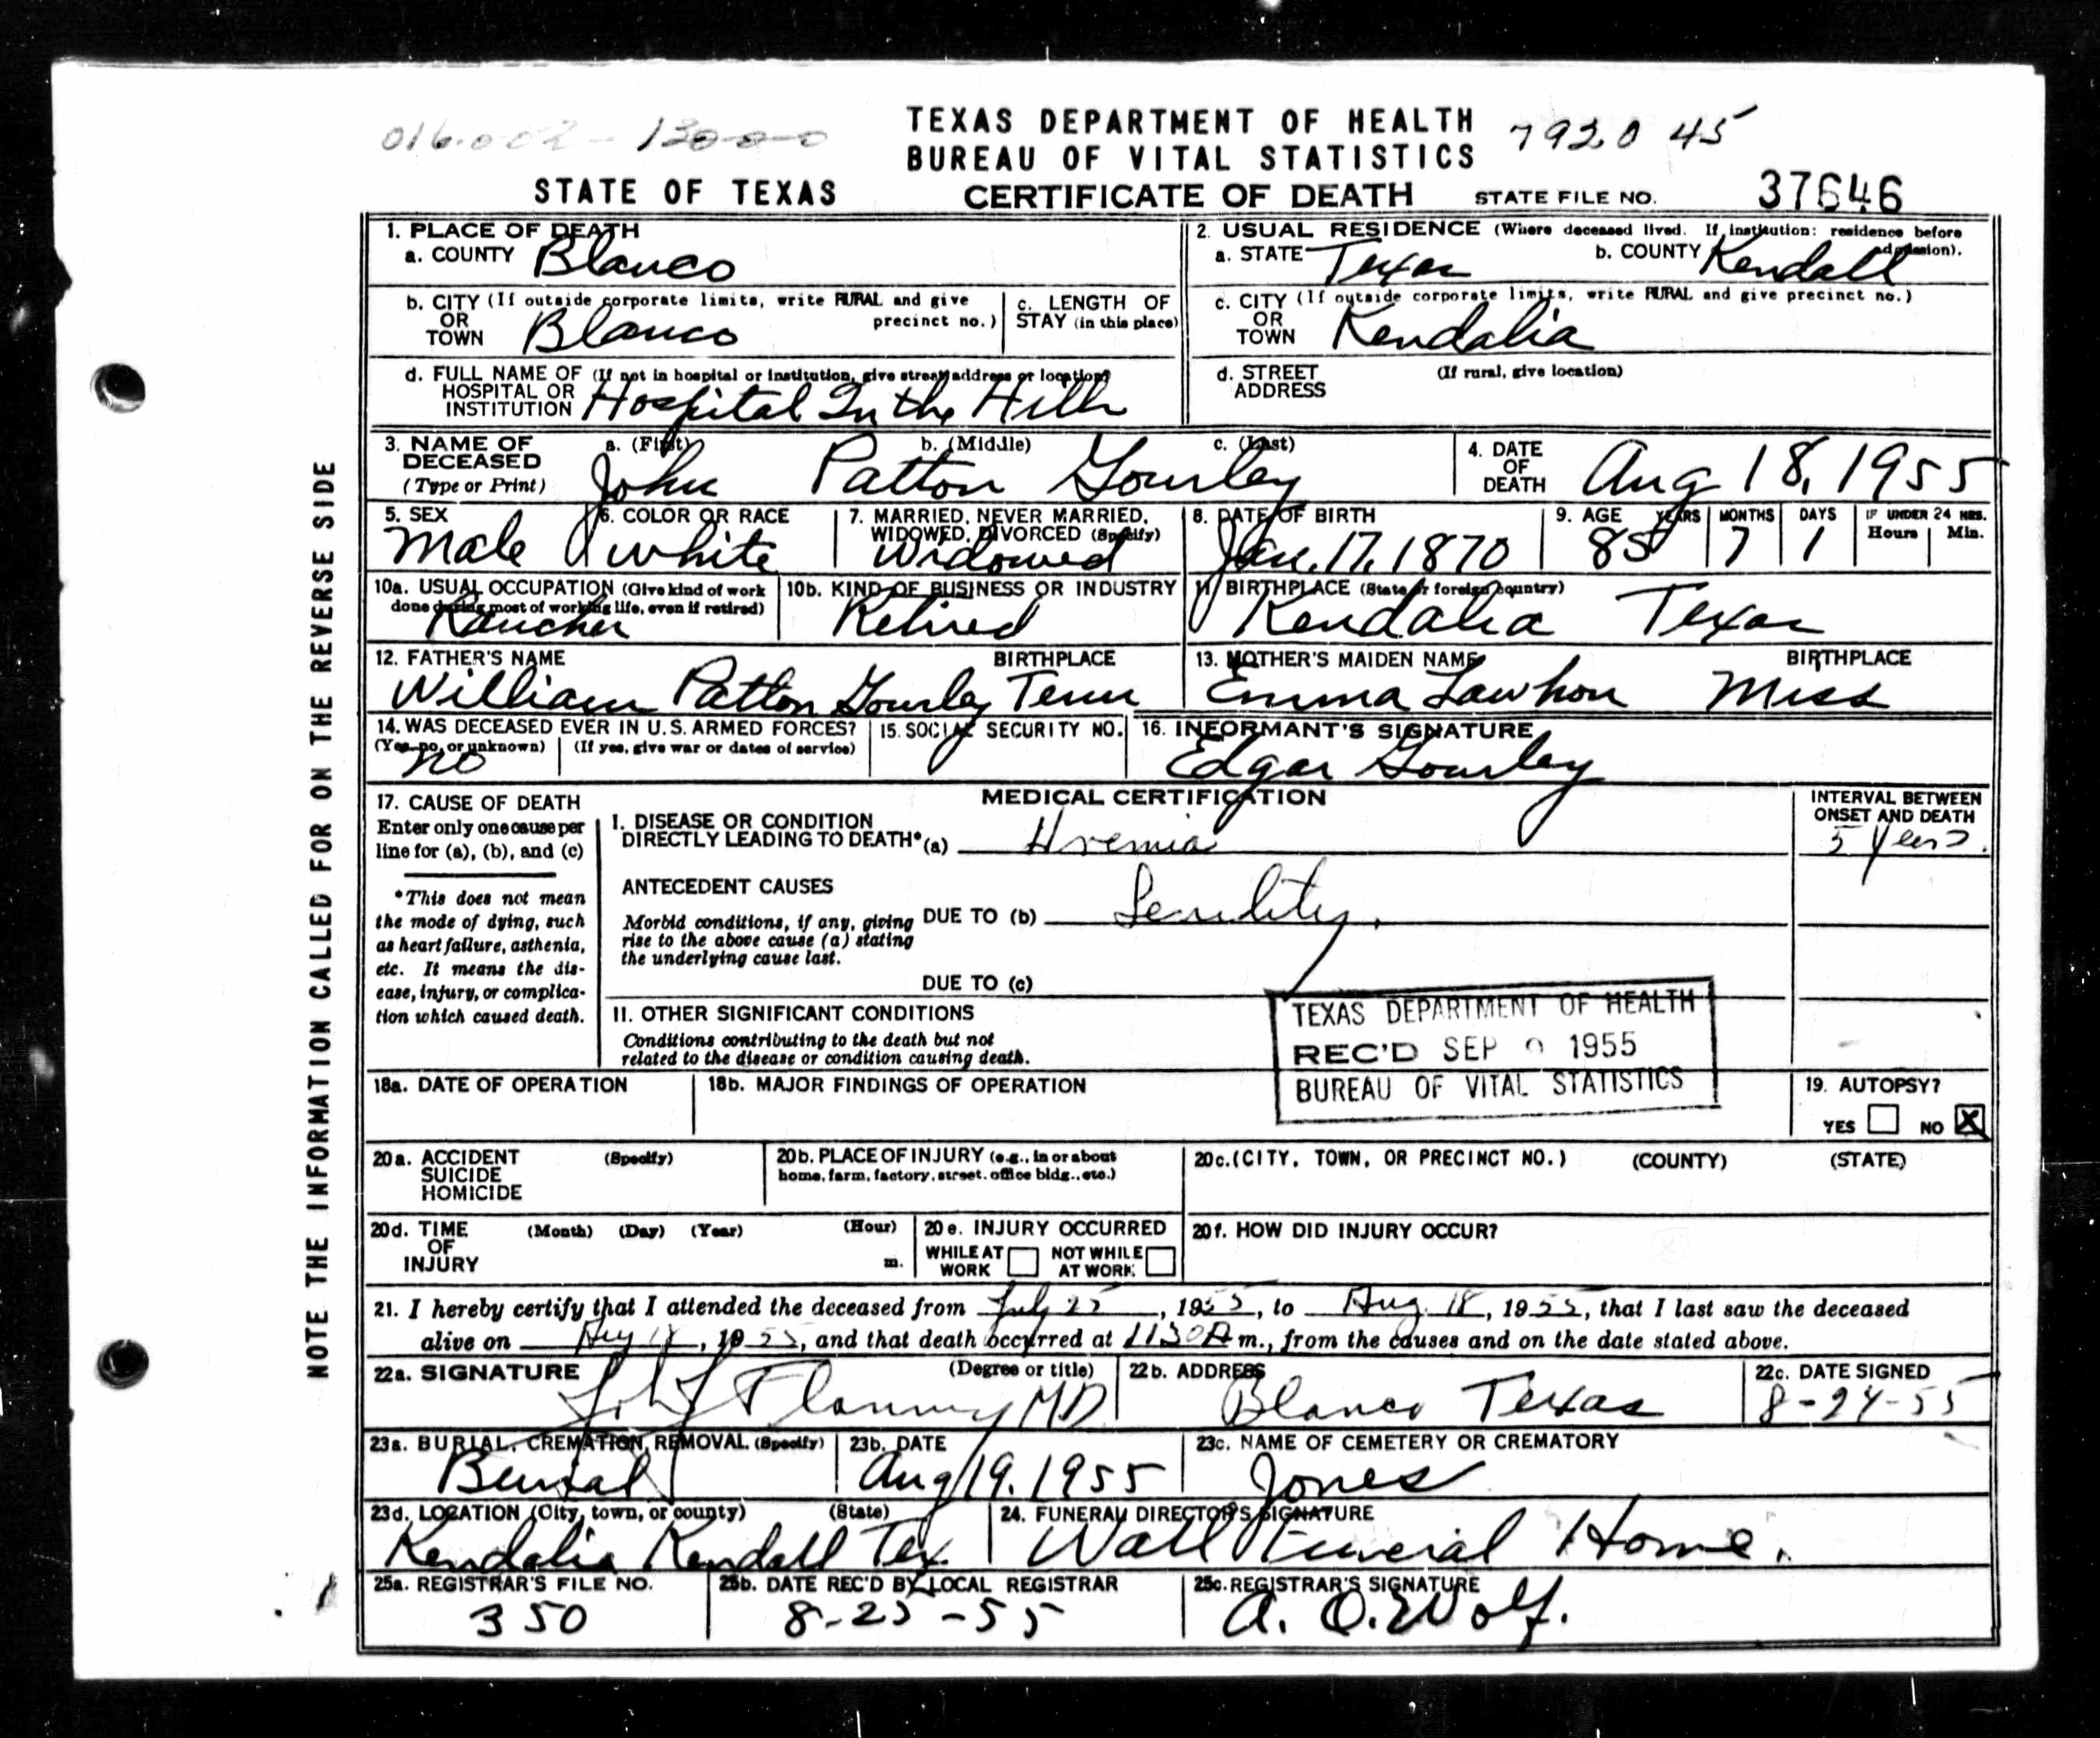 016.002-13000
TEXAS DEPARTMENT OF HEALTH
7920 45
BUREAU OF VITAL STATISTICS
STATE OF TEXAS
CERTIFICATE OF DEATH
STATE FILE NO. 37646
NOTE THE INFORMATION CALLED FOR ON THE REVERSE SIDE
1. PLACE OF DEATH
a. COUNTY Blanco
2. USUAL RESIDENCE (Where deceased lived. If institution: residence before admission).
a. STATE Texas b. COUNTY Kendall
b. CITY (If outside corporate limits, write RURAL and give precinct no.)
OR TOWN Blanco
c. LENGTH OF STAY (in this place)
c. CITY (If outside corporate limits, write RURAL and give precinct no.)
OR TOWN Kendalia
d. FULL NAME OF (If not in hospital or institution, give street address or location)
HOSPITAL OR INSTITUTION Hospital In the Hills
d. STREET ADDRESS (If rural, give location)
3. NAME OF DECEASED (Type or Print)
a. (First) b. (Middle) c. (Last)
John Patton Gourley
4. DATE OF DEATH Aug 18, 1955
5. SEX
Male
6. COLOR OR RACE
White
7. MARRIED, NEVER MARRIED, WIDOWED, DIVORCED (Specify)
Widowed
8. DATE OF BIRTH
Jan. 17, 1870
9. AGE YEARS MONTHS DAYS IF UNDER 24 HRS. Hours Min.
85 7 1
10a. USUAL OCCUPATION (Give kind of work done during most of working life, even if retired)
Rancher
10b. KIND OF BUSINESS OR INDUSTRY
Retired
11. BIRTHPLACE (State or foreign country)
Kendalia Texas
12. FATHER'S NAME BIRTHPLACE
William Patton Gourley Tenn
13. MOTHER'S MAIDEN NAME BIRTHPLACE
Emma Lawhon Miss
14. WAS DECEASED EVER IN U.S. ARMED FORCES?
(Yes, no, or unknown) (If yes, give war or dates of service)
no
15. SOCIAL SECURITY NO.
16. INFORMANT'S SIGNATURE
Edgar Gourley
17. CAUSE OF DEATH
Enter only one cause per
line for (a), (b), and (c)
*This does not mean
the mode of dying, such
as heart failure, asthenia,
etc. It means the dis-
ease, injury, or complica-
tion which caused death.
MEDICAL CERTIFICATION
INTERVAL BETWEEN
ONSET AND DEATH
I. DISEASE OR CONDITION
DIRECTLY LEADING TO DEATH* (a) Uremia
5 years
ANTECEDENT CAUSES
Morbid conditions, if any, giving
rise to the above cause (a) stating
the underlying cause last.
DUE TO (b) Senility.
DUE TO (c)
II. OTHER SIGNIFICANT CONDITIONS
Conditions contributing to the death but not
related to the disease or condition causing death.
TEXAS DEPARTMENT OF HEALTH
REC'D SEP 1955
BUREAU OF VITAL STATISTICS
18a. DATE OF OPERATION
18b. MAJOR FINDINGS OF OPERATION
19. AUTOPSY?
YES NO X
20a. ACCIDENT SUICIDE HOMICIDE (Specify)
20b. PLACE OF INJURY (e.g., in or about home, farm, factory, street, office bldg., etc.)
20c. (CITY, TOWN, OR PRECINCT NO.) (COUNTY) (STATE)
20d. TIME OF INJURY (Month) (Day) (Year) (Hour) m.
20e. INJURY OCCURRED
WHILE AT WORK NOT WHILE AT WORK
20f. HOW DID INJURY OCCUR?
21. I hereby certify that I attended the deceased from July 25, 1955, to Aug. 18, 1955, that I last saw the deceased
alive on Aug 18, 1955, and that death occurred at 1130 A m., from the causes and on the date stated above.
22a. SIGNATURE (Degree or title)
MD
22b. ADDRESS
Blanco Texas
22c. DATE SIGNED
8-24-55
23a. BURIAL, CREMATION, REMOVAL (Specify)
Burial
23b. DATE
Aug 19, 1955
23c. NAME OF CEMETERY OR CREMATORY
Jones
23d. LOCATION (City, town, or county) (State)
Kendalia Kendall Tex.
24. FUNERAL DIRECTOR'S SIGNATURE
Wall Funeral Home.
25a. REGISTRAR'S FILE NO.
350
25b. DATE REC'D BY LOCAL REGISTRAR
8-25-55
25c. REGISTRAR'S SIGNATURE
A. O. Wolf.